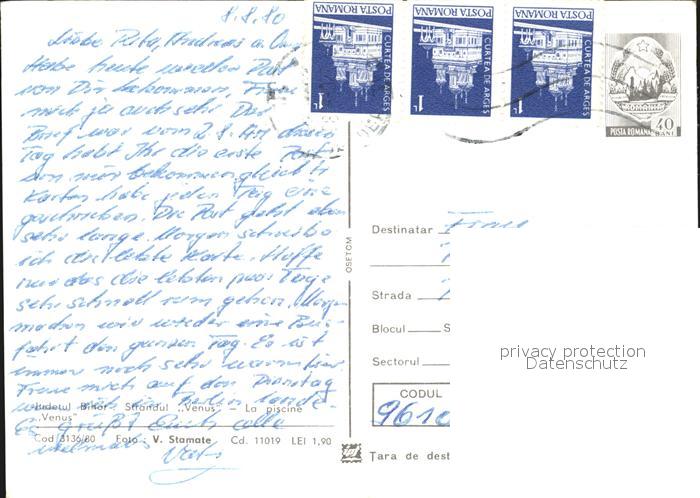 8.8.80
Liebe Rita, Andreas u.
Habe heute wieder Post
von Dir bekommen,
mich ja auch sehr. Der
Brief war vom 2.8. An diesen
Tag habt Ihr die erste Post
von mir bekommen gleich
Karten habe jeden Tag eine
geschrieben. Die Post geht eben
sehr lange. Morgen schreibe
ich die letzte Karte. Hoffe
nur das die letzten paar Tage
sehr schnell rum gehen. Morgen
machen wir wieder eine
fahrt den ganzen Tag. Es ist
immer noch sehr warm hier.
Freue mich auf den Dienstag
wenn ich in Berlin lande.
Es grüßt Euch alle
vielmals
Vati
Strandul „Venus" – La piscine
„Venus"
Cod 3136/80 Foto: V. Stamate Cd. 11019 LEI 1,90
OSETOM
POSTA ROMANA
CURTEA DE ARGES
1L
POSTA ROMANA
CURTEA DE ARGES
1L
POSTA ROMANA
CURTEA DE ARGES
1L
POSTA ROMANA 40 BANI
Destinatar
Strada
Blocul S
Sectorul
CODUL
9610
Țara de dest
privacy protection
Datenschutz